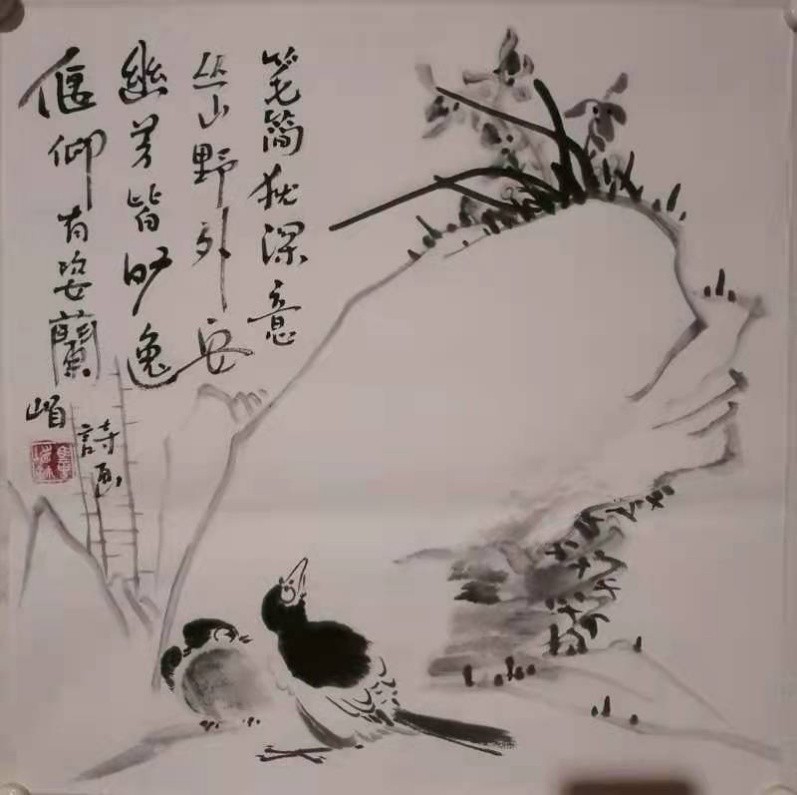 笔简犹深意
丛山野外安
幽芳皆旷逸
偃仰有姿蘭
詩画